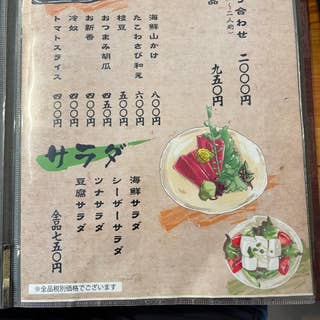 り合わせ 二〇〇〇円
（〜二人前）
品 九五〇円
海鮮山かけ 八〇〇円
たこわさび和え 六〇〇円
枝豆 五〇〇円
おつまみ胡瓜 四五〇円
お新香 四〇〇円
冷奴 四〇〇円
トマトスライス 四〇〇円
サラダ
海鮮サラダ
シーザーサラダ
ツナサラダ
豆腐サラダ
全品七五〇円
※全品税別価格でございます